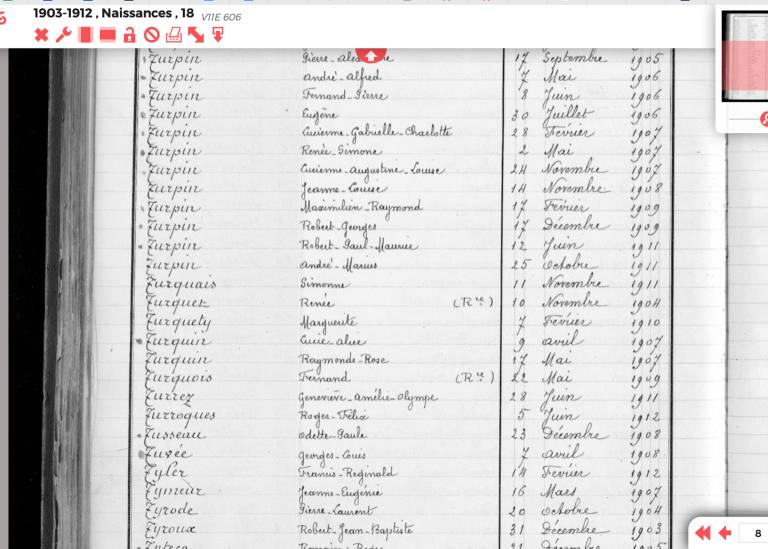 1903-1912 , Naissances , 18 V11E 606
Turpin Pierre-Alexandre 17 Septembre 1905
Turpin André-Alfred 7 Mai 1906
Turpin Fernand-Pierre 8 Juin 1906
Turpin Eugène 30 Juillet 1906
Turpin Lucienne-Gabrielle-Charlotte 28 Février 1907
Turpin Renée-Simone 2 Mai 1907
Turpin Lucienne-Augustine-Louise 24 Novembre 1907
Turpin Jeanne-Louise 14 Novembre 1908
Turpin Maximilien-Raymond 17 Février 1909
Turpin Robert-Georges 17 Décembre 1909
Turpin Robert-Paul-Maurice 12 Juin 1911
Turpin André-Marius 25 Octobre 1911
Turquais Simonne 11 Novembre 1911
Turquet Renée (Rce) 10 Novembre 1904
Turquety Marguerite 7 Février 1910
Turquin Lucie-Alice 9 Avril 1907
Turquin Raymonde-Rose 17 Mai 1907
Turquois Fernand (Rce) 22 Mai 1909
Turrez Geneviève-Amélie-Olympe 28 Juin 1911
Turroques Roger-Félix 5 Juin 1912
Tusseau Odette-Paule 23 Décembre 1908
Tuvée Georges-Louis 7 Avril 1908
Tyler Francis-Reginald 14 Février 1912
Tymeur Jeanne-Eugénie 16 Mars 1907
Tyrode Pierre-Laurent 20 Octobre 1904
Tyroux Robert-Jean-Baptiste 31 Décembre 1903
8